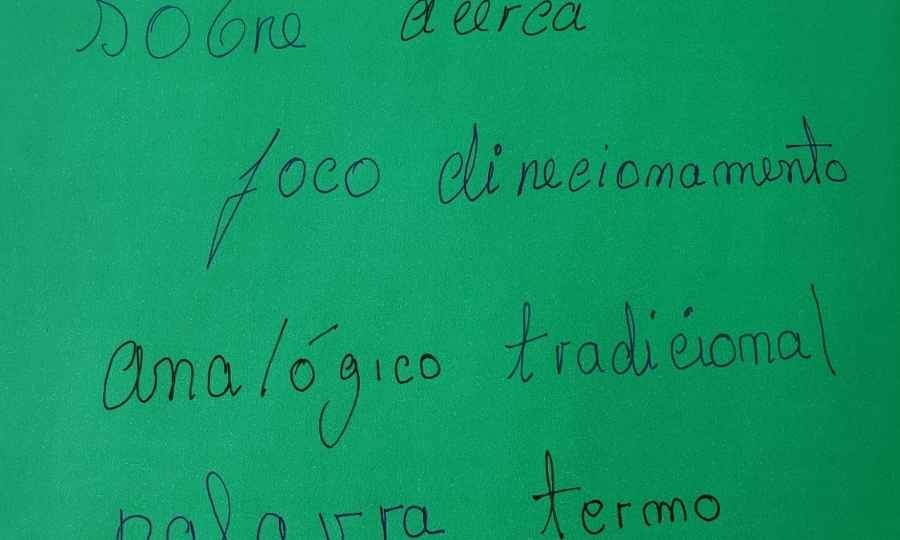 sobre acerca
foco direcionamento
analógico tradicional
palavra termo